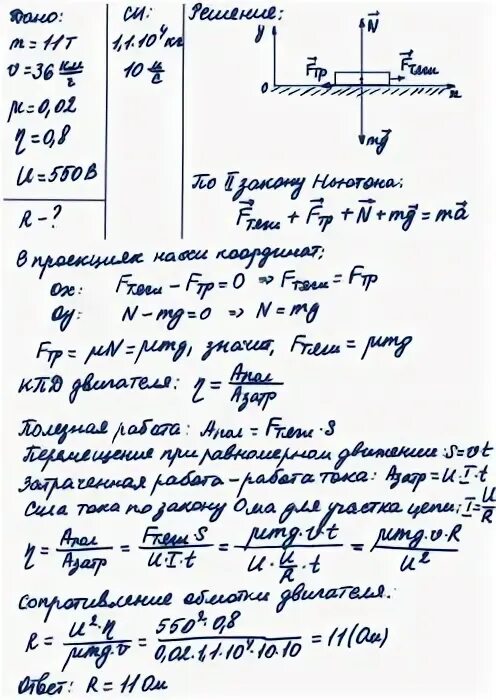 Дано: СИ: Решение:
m = 11т 1,1·10⁴ кг
v = 36 км/ч 10 м/с
μ = 0,02
η = 0,8
U = 550 В
R - ?
y N⃗ F⃗тр F⃗тяги 0 x mg⃗
По II закону Ньютона:
F⃗тяги + F⃗тр + N⃗ + mg⃗ = ma⃗
В проекциях на оси координат:
Ox: Fтяги − Fтр = 0 ⇒ Fтяги = Fтр
Oy: N − mg = 0 ⇒ N = mg
Fтр = μN = μmg, значит, Fтяги = μmg
КПД двигателя: η = Aпол/Aзатр
Полезная работа: Aпол = Fтяги · S
Перемещение при равномерном движении: S = vt
Затраченная работа - работа тока: Aзатр = U·I·t
Сила тока по закону Ома для участка цепи: I = U/R
η = Aпол/Aзатр = Fтяги·S/U·I·t = μmg·v·t/U·U/R·t = μmg·v·R/U²
Сопротивление обмотки двигателя:
R = U²·η/μmg·v = 550²·0,8/0,02·1,1·10⁴·10·10 = 11 (Ом)
Ответ: R = 11 Ом